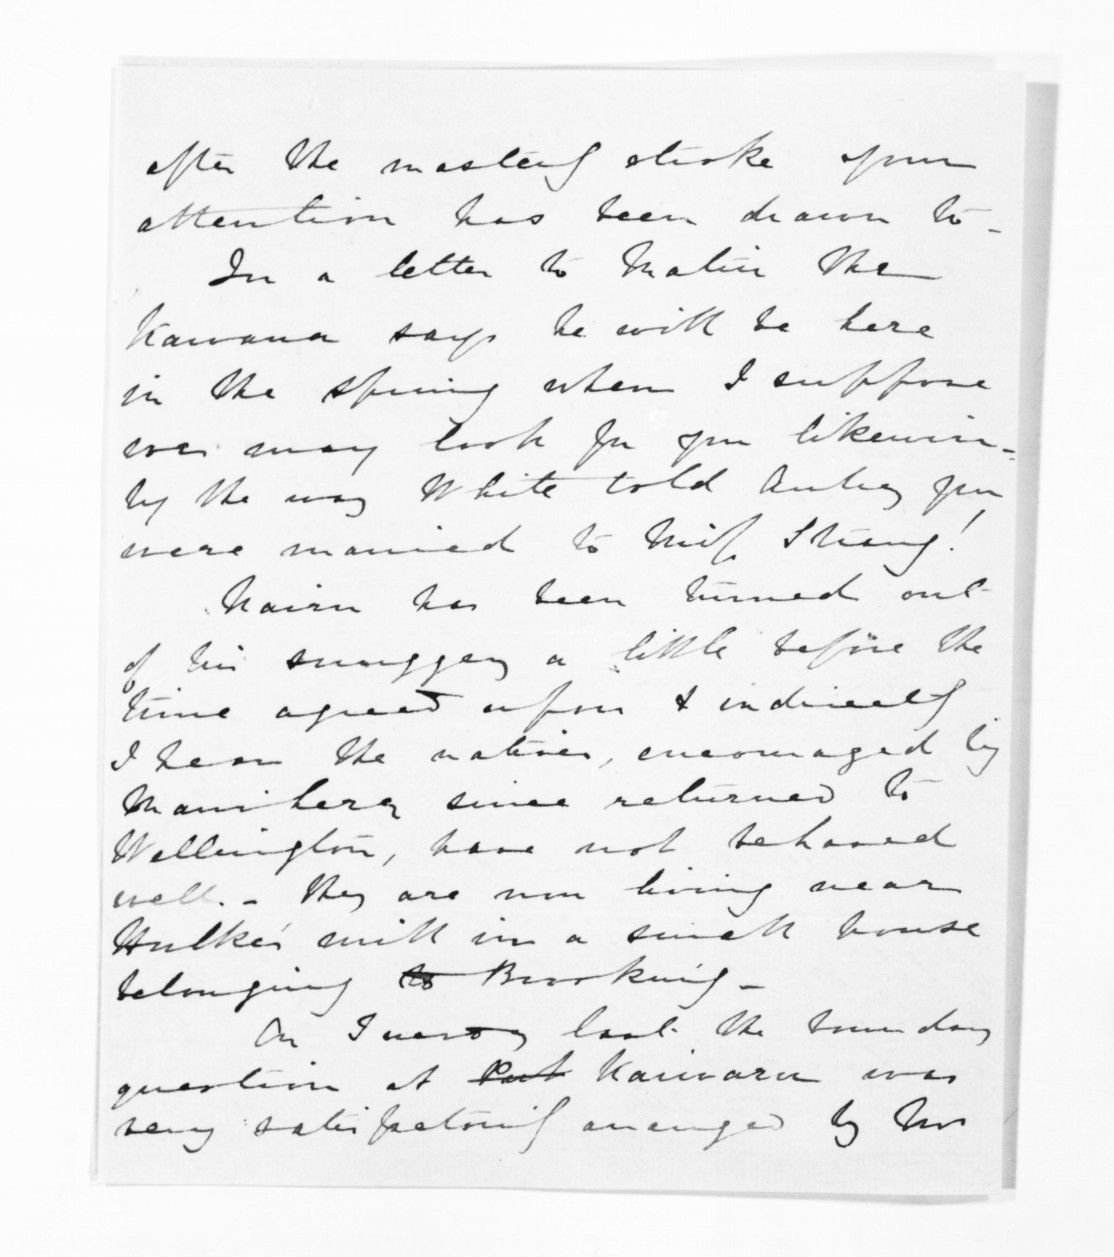 after the masterly stroke your
attention has been drawn to -
In a letter to Matiu the
Kawana says he will be here
in the spring when I suppose
we may look for you likewise -
by the way White told Aubrey you
were married to Miss Strang!
Nairn has been turned out
of his snuggery a little before the
time agreed upon & indirectly
I hear the natives, encouraged by
since returned to
Wellington, have not behaved
well. - they are now living near
Hulke's mill in a small house
belonging to Brooking -
On Tuesday last the boundary
question at Kaiwaru was
very satisfactorily arranged by Mr